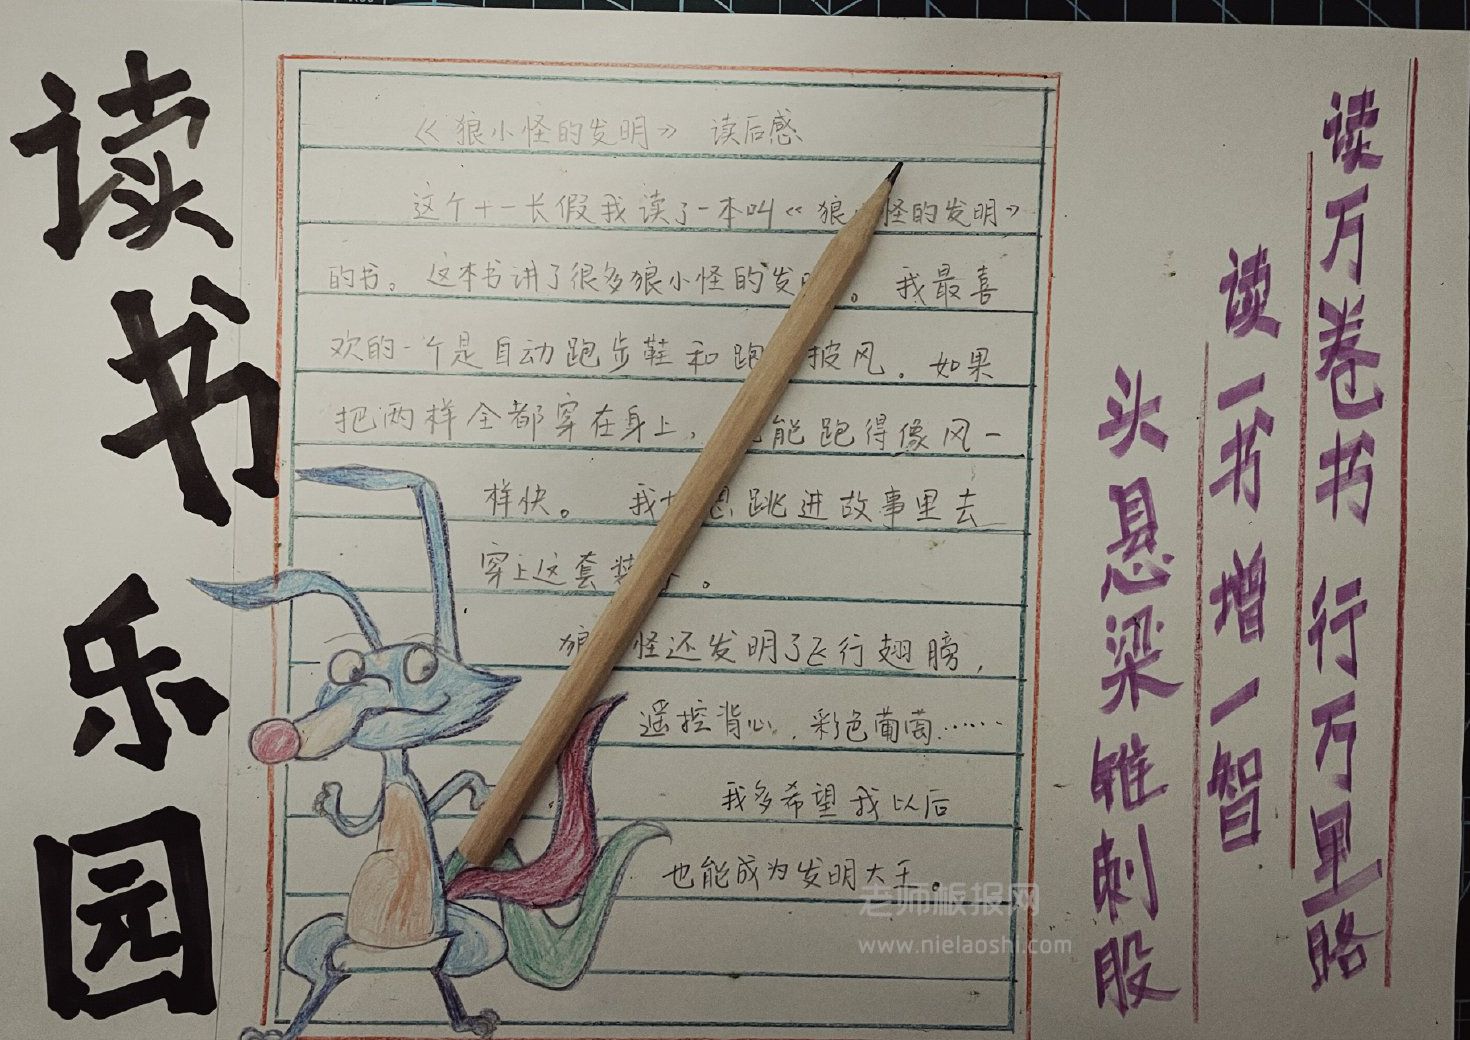 读书乐园
《狼小怪的发明》 读后感
这个十一长假我读了一本叫《狼怪的发明》
的书。这本书讲了很多狼小怪的发。我最喜
欢的一个是自动跑步鞋和跑披风。如果
把两样全都穿在身上,能跑得像风一
样快。 我想跳进故事里去
穿上这套装。
狼怪还发明了飞行翅膀,
遥控背心,彩色葡萄……
我多希望我以后
也能成为发明大王。
读万卷书 行万里路
读一书增一智
头悬梁 锥刺股
老师板报网
www.nielaoshi.com